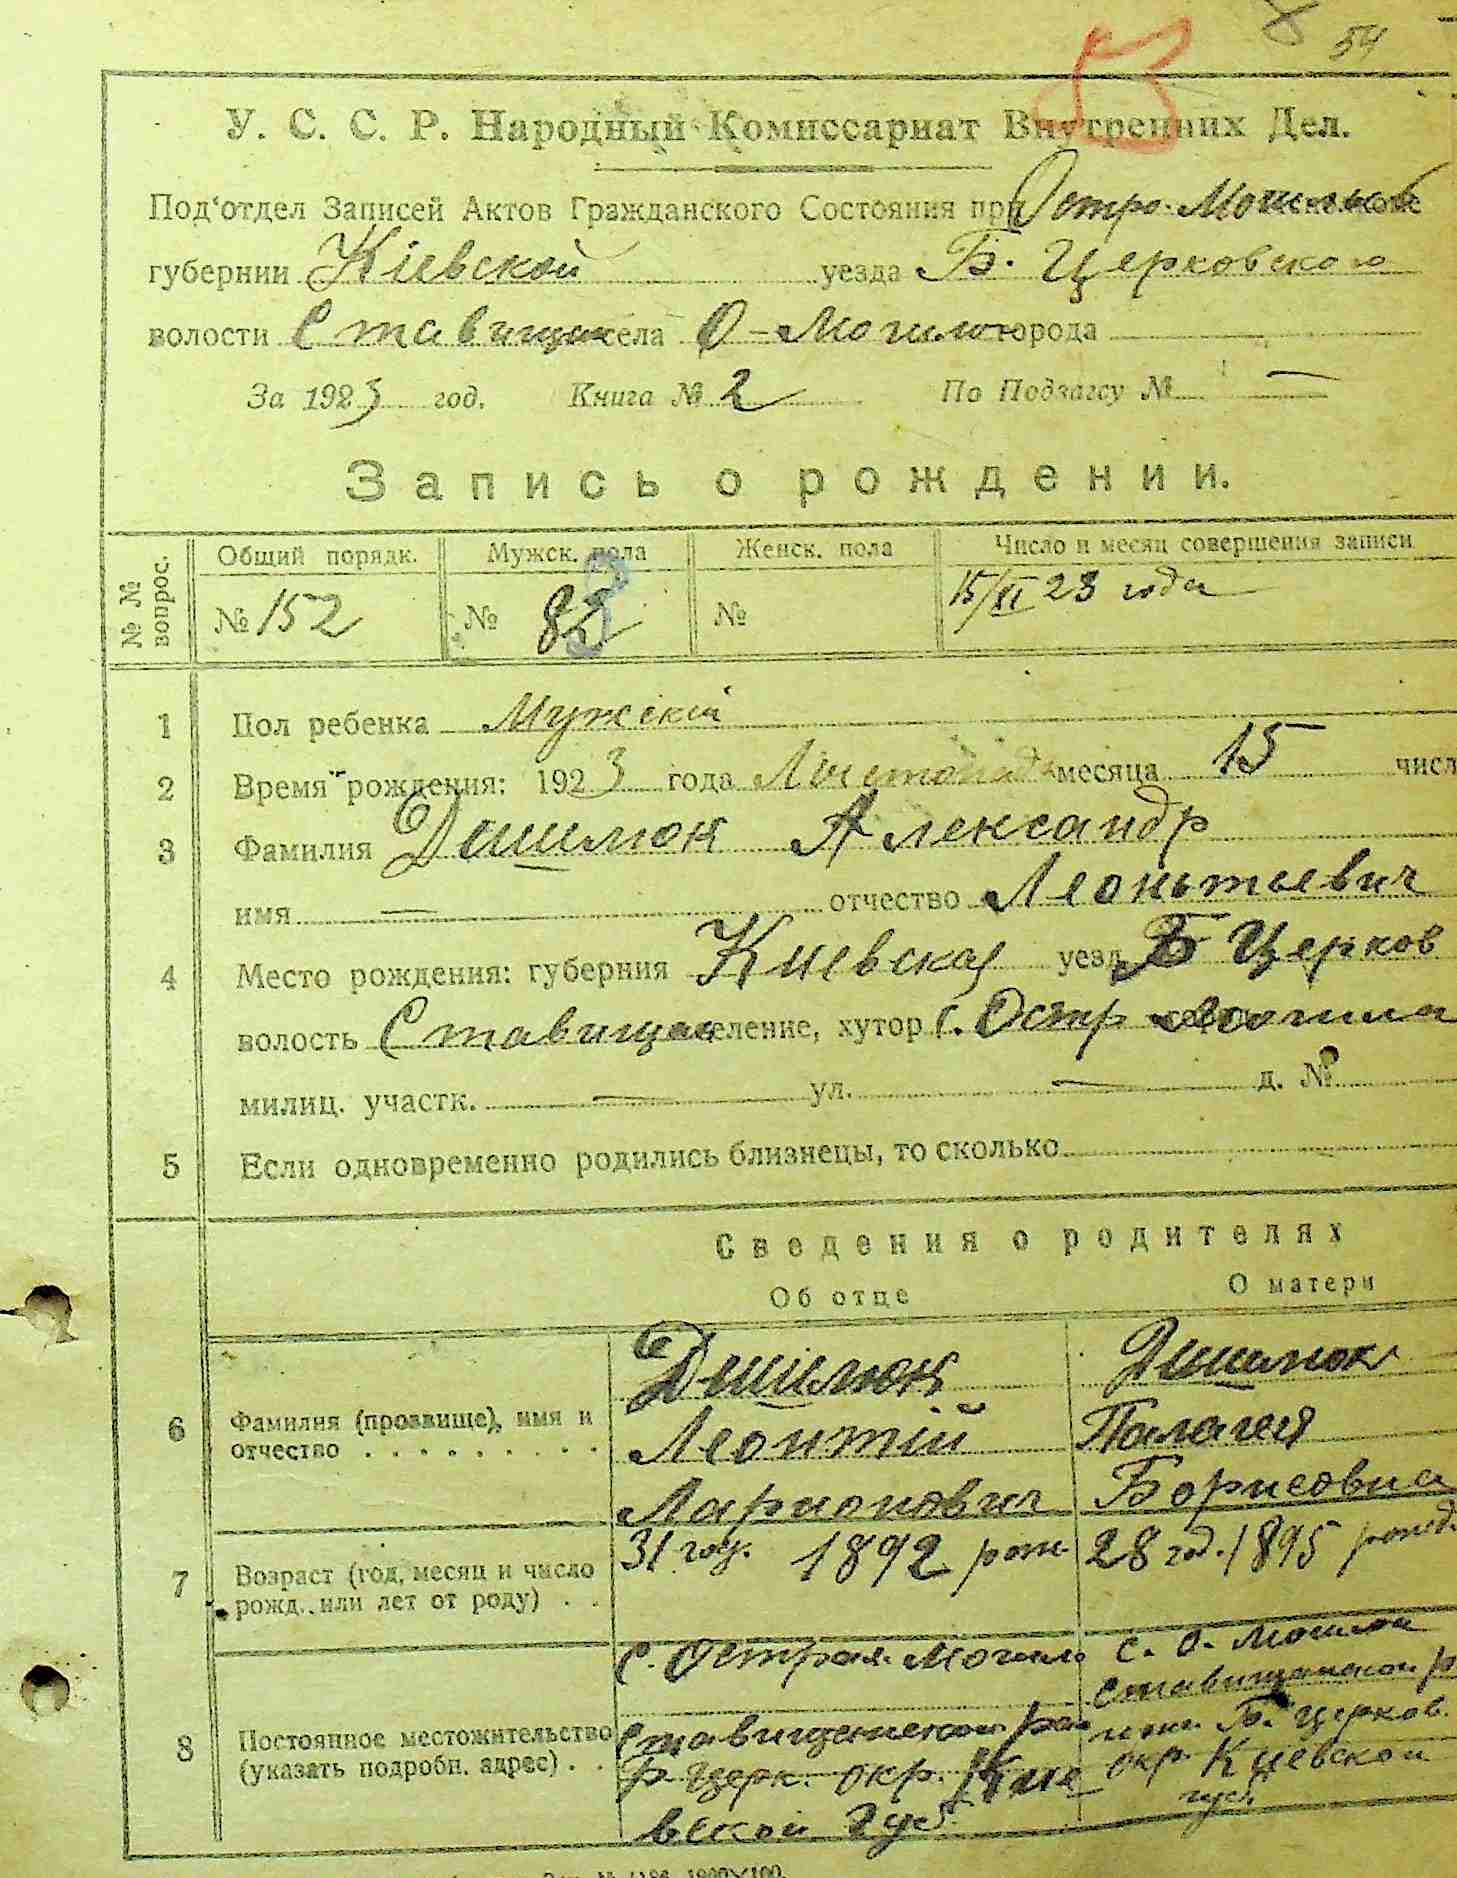 54
У. С. С. Р. Народный Комиссариат Внутренних Дел.
Под'отдел Записей Актов Гражданского Состояния при Остро-Могильск
губернии Кіевской уезда Б. Церковского
волости Ставищан села О-Могила города —
За 1923 год. Книга № 2 По Подзагсу № —
Запись о рождении.
№ № вопрос. Общий порядк. Мужск. пола Женск. пола Число и месяц совершения записи
№ 152 № 82 № 15/XI 23 года
1 Пол ребенка Мужскій
2 Время рождения: 1923 года Листопада месяца 15 числ
3 Фамилия Александр
имя — отчество Леонтьевич
4 Место рождения: губерния Киевская уезд Б Церков
волость Ставищан селение, хутор с. Остр Могила
милиц. участк. — ул. — д. №
5 Если одновременно родились близнецы, то сколько
Сведения о родителях
Об отце О матери
6 Фамилия (прозвище), имя и отчество
Леонтій Палагея
Ларионович Борисовна
7 Возраст (год, месяц и число рожд. или лет от роду) . .
31 год. 1892 рож 28 год. 1895 рожд.
8 Постоянное местожительство (указать подробн. адрес) . .
с. Острая Могила с. О. Могила
Ставищенского рай Ставищанского р
Б-Церк. окр. Кие Б. Церков.
вской губ. окр. Киевской
губ